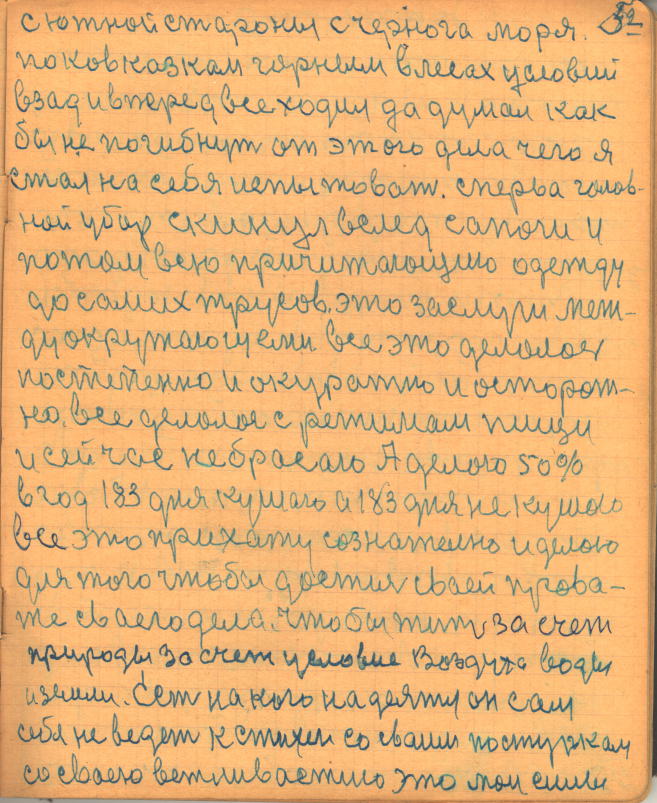 52
с ютной староны с чернога моря.
по ковказкам горнем в лесах условий
взад и вперед все ходил да думал как
бы не погибнут от этого дела чего я
стал на себя испытоват. сперва голов-
ной убор скинул вслед сапоги и
потом всю причитающию одежду
до самих трусов. это заслуги меж-
ду окружающеми все это делолос
постепенно и окуратно и осторож-
но. все делолос с режимам пищи
и сейчас не брасаю А делою 50%
в год 183 дня кушаю а 183 дня не кушаю
все это прихажу сознателно и делою
для того чтобы достич сваей
же сваего дела. чтобы жит за счет
природы за счет условие Воздуха воды
и земли. Сет на кого надеятц он сам
себя не ведет к стихеи со сваим поступкам
со сваею вежливастию это мои силы